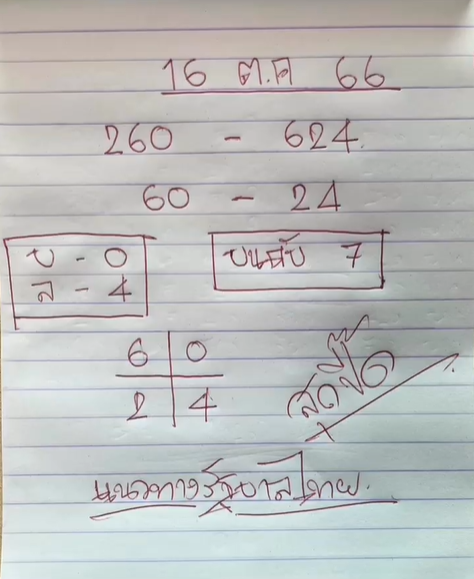 16 ต.ค 66
260 - 624
60 - 24
บ - 0
ล - 4
บนดับ 7
6 0
2 4
แนวทางรัฐบาลไทย.